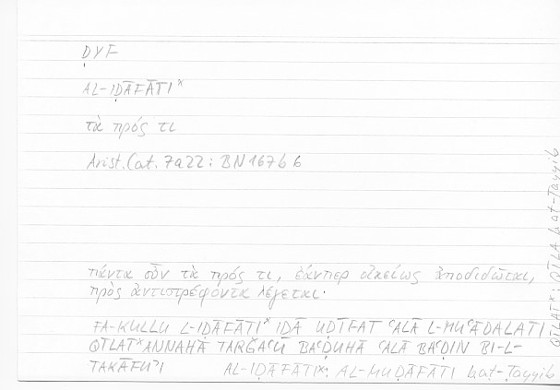 ḌYF
AL-IḌĀFĀTIˣ
τὰ πρός τι
Arist. Cat. 7a22: BN 167b6
πάντα οὖν τὰ πρός τι, ἐάνπερ οἰκείως ἀποδιδῶται,
πρὸς ἀντιστρέφοντα λέγεται·
FA-KULLU L-IḌĀFĀTIˣ IḎĀ UḌĪFAT ʿALĀ L-MUʿĀDALATI
QĪLATˣ ANNAHĀ TARǦAʿU BAʿḌUHĀ ʿALĀ BAʿḌIN BI-L-
TAKĀFUʾI AL-IḌĀFĀTIˣ: AL-MUḌĀFĀTI Laṭ-Ṭayyib
QĪLATˣ: QĪLA Laṭ-Ṭayyib